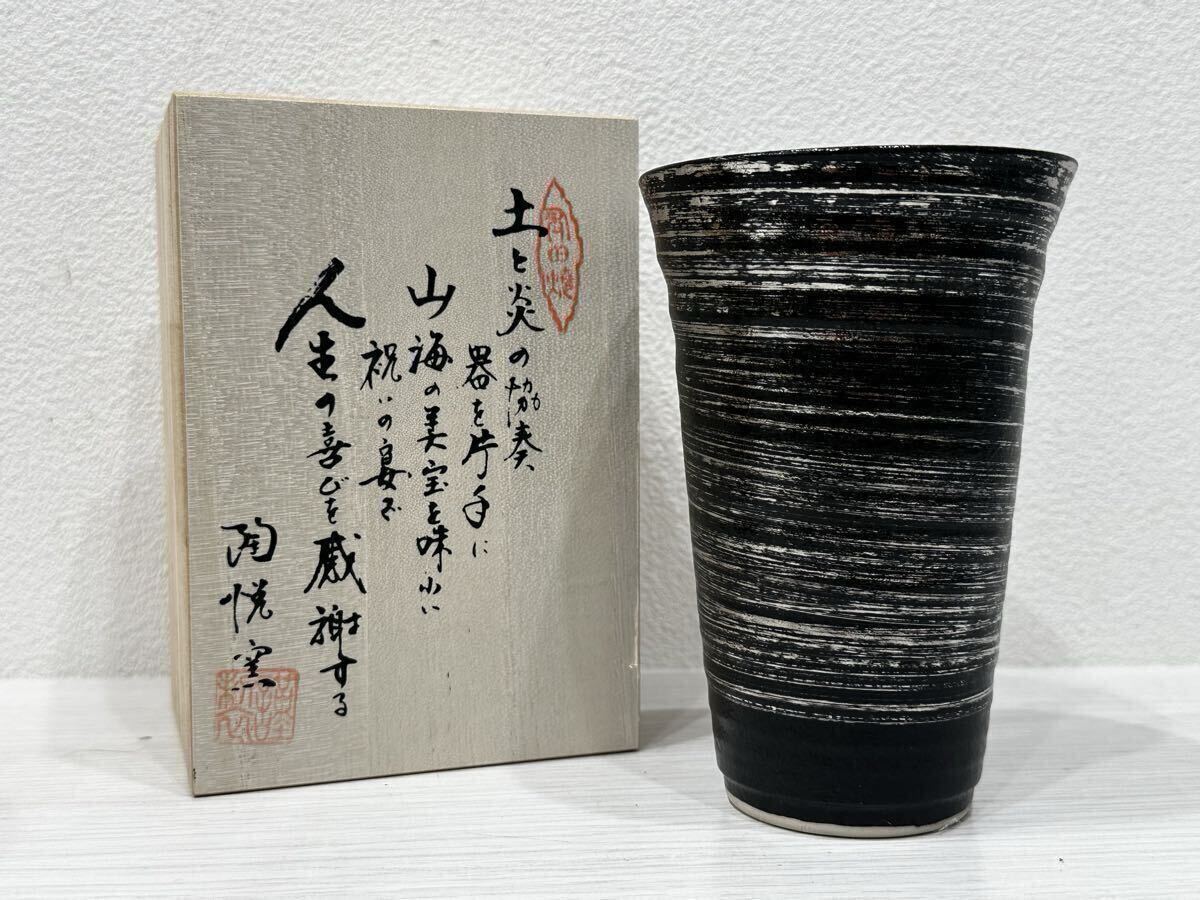 有田焼
土と炎の協奏
器を片手に
山海の美宝を味わい
祝いの宴で
人生の喜びを感謝する
陶悦窯